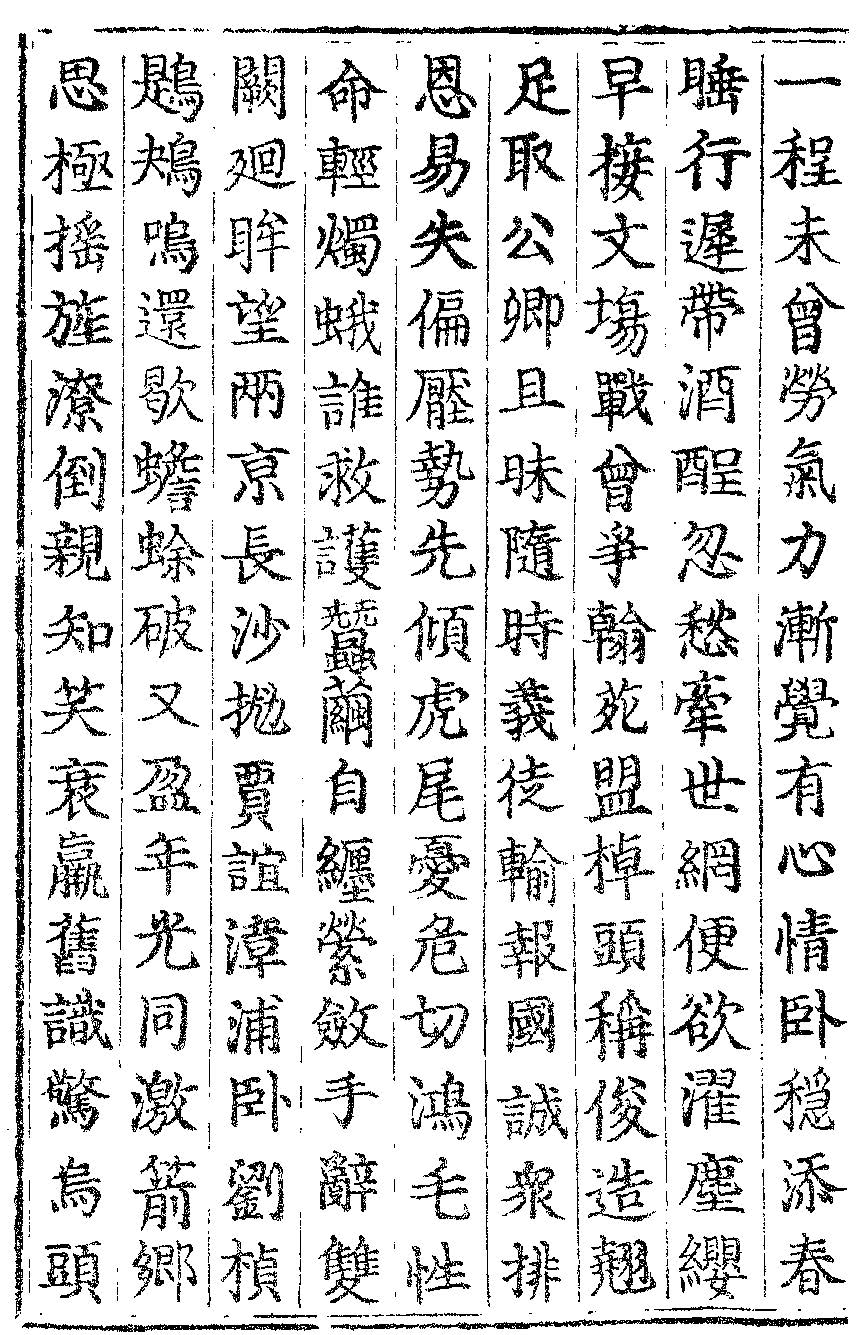 一程未曾勞氣力漸覺有心情卧穩添春
睡行遲帶酒酲忽愁牽世網便欲濯塵纓
早接文塲戰曾爭翰苑盟棹頭稱俊造翹
足取公卿且昧隨時義徒輸報國誠衆排
恩易失偏壓勢先傾虎尾憂危切鴻毛性
命輕燭蛾誰救護蠶繭自纏縈斂手辭雙
闕廻眸望兩京長沙抛賈誼漳浦卧劉楨
鶗鴂鳴還歇蟾蜍破又盈年光同激箭郷
思極揺旌潦倒親知笑衰羸舊識驚烏頭